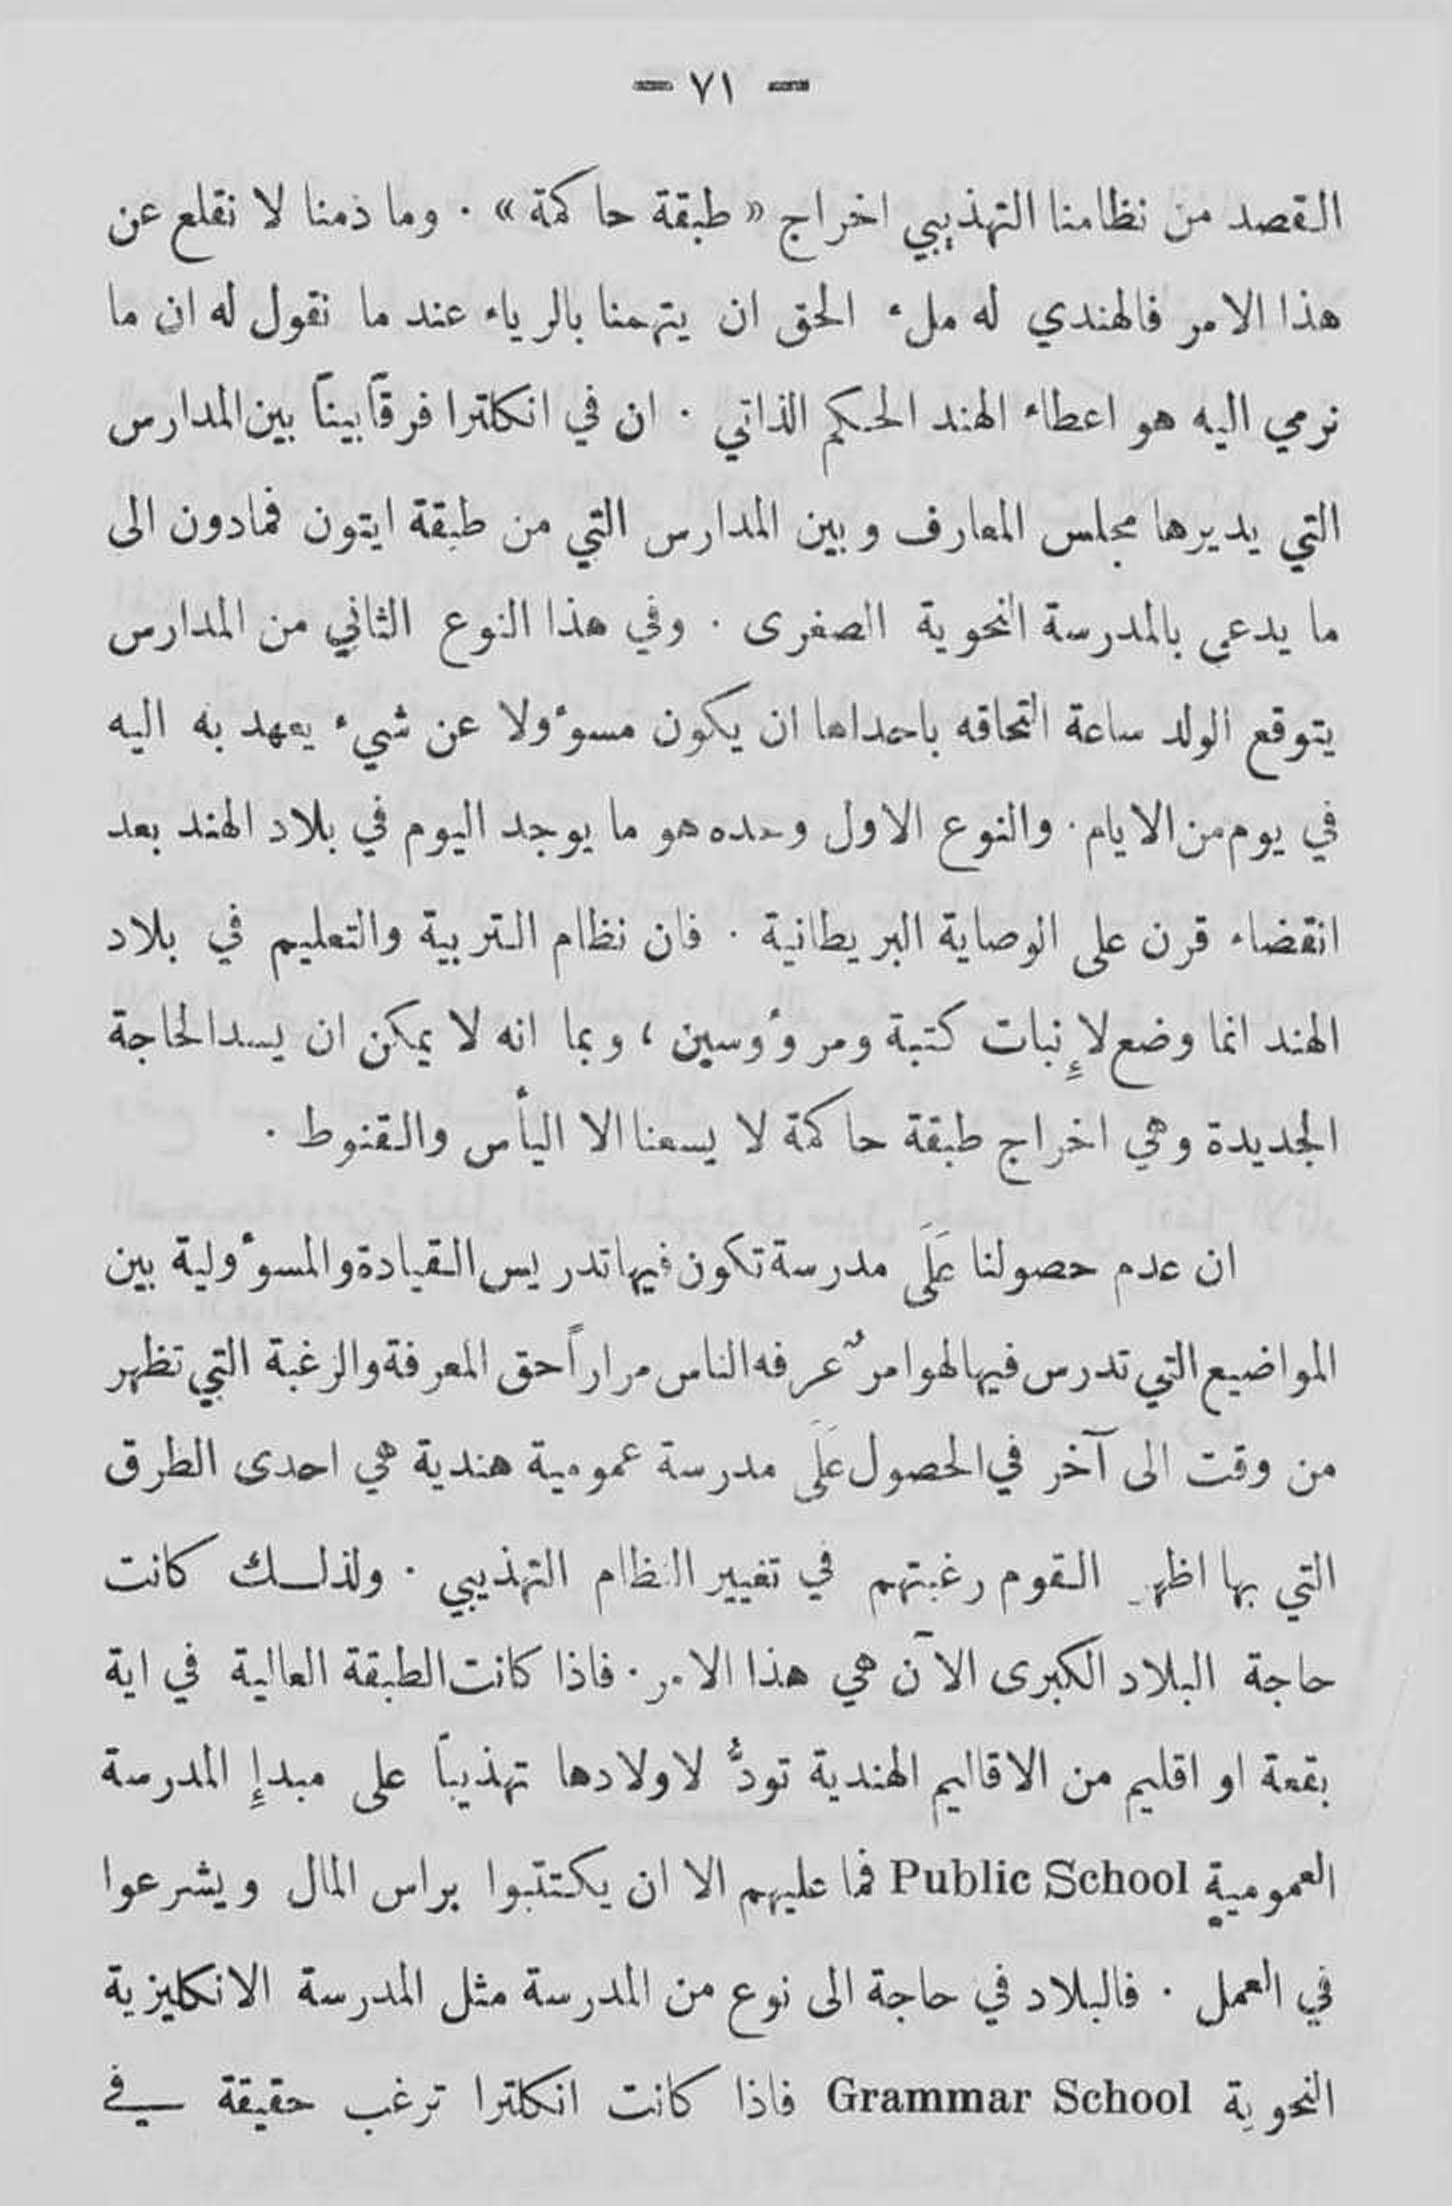 — ٧١ —
القصد من نظامنا التهذيبي اخراج « طبقة حاكمة » . وما ذمنا لا نقلع عن
هذا الامر فالهندي له ملء الحق ان يتهمنا بالرياء عند ما نقول له ان ما
نرمي اليه هو اعطاء الهند الحكم الذاتي . ان في انكلترا فرقاً بيناً بين المدارس
التي يديرها مجلس المعارف وبين المدارس التي من طبقة ايتون فمادون الى
ما يدعى بالمدرسة النحوية الصغرى . وفي هذا النوع الثاني من المدارس
يتوقع الولد ساعة التحاقه باحداها ان يكون مسوءولا عن شيء يعهد به اليه
في يوم من الايام . والنوع الاول وحده هو ما يوجد اليوم في بلاد الهند بعد
انقضاء قرن على الوصاية البريطانية . فان نظام التربية والتعليم في بلاد
الهند انما وضع لإنبات كتبة ومروءوسين ، وبما انه لا يمكن ان يسد الحاجة
الجديدة وهي اخراج طبقة حاكمة لا يسعنا الا اليأس والقنوط .
ان عدم حصولنا عَلَى مدرسة تكون فيها تدريس القيادة والمسوءولية بين
المواضيع التي تدرس فيها لهو امرٌ عرفه الناس مراراً حق المعرفة والرغبة التي تظهر
من وقت الى آخر في الحصول عَلَى مدرسة عمومية هندية هي احدى الطرق
التي بها اظهر القوم رغبتهم في تغيير النظام التهذيبي . ولذلك كانت
حاجة البلاد الكبرى الآن هي هذا الامر . فاذا كانت الطبقة العالية في اية
بقعة او اقليم من الاقاليم الهندية تودُّ لاولادها تهذيباً على مبدإ المدرسة
العمومية Public School فما عليهم الا ان يكتتبوا براس المال ويشرعوا
في العمل . فالبلاد في حاجة الى نوع من المدرسة مثل المدرسة الانكليزية
النحوية Grammar School فاذا كانت انكلترا ترغب حقيقة في